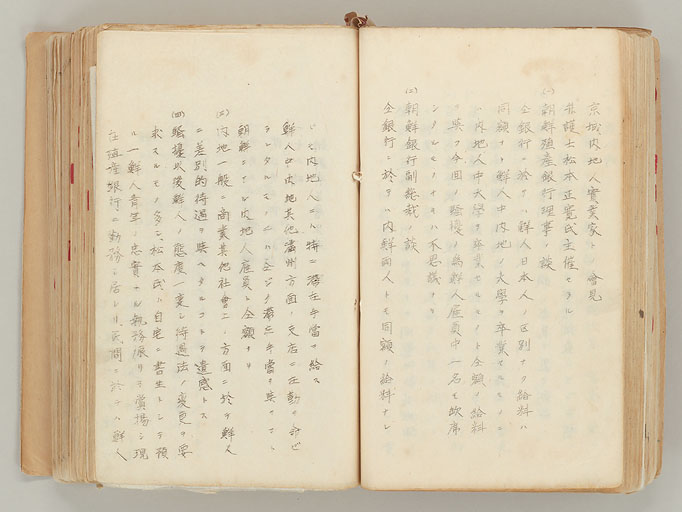 京城内地人實業家トノ會見
弁護士松本正寛氏主催セラル
(一)朝鮮殖産銀行理事ノ談
全銀行ニ於テハ鮮人日本人ノ區別ナク給料ハ
同額ナリ鮮人中内地ノ大學ヲ卒業セルモノハ
内地人中大學ヲ卒業セルモノト全額ノ給料
ヲ與フ今回ノ騒擾ノ為鮮人雇員中一名モ欠席
シタルモノナキハ不思議ナリ
(二)朝鮮銀行副総裁ノ談
全銀行ニ於テハ内鮮両人トモ同額ノ給料ナレ
トモ内地人ニハ特ニ滞在手當ヲ給ス
鮮人中内地其他滿州方面ノ支店ニ在勤ヲ命ゼ
ラレタルモノニハ全ジク滞在手當ヲ與フ
朝鮮ニテハ内地人雇員ト全額ナリ
(三)内地一般ニ商業其他社會上ノ方面ニ於テ鮮人
ニ差別的待遇ヲ與ヘタルコトヲ遺感トス
(四)騒擾以後鮮人ノ態度一変シ待遇法ノ変更ヲ要
求スルモノ多シ、松本氏ハ自宅ニ書生トシテ預
ル一鮮人青年ノ忠實ナル執務振リヲ賞揚シ現
在殖産銀行ニ勤務シ居レリ、民間ニ於テハ鮮人